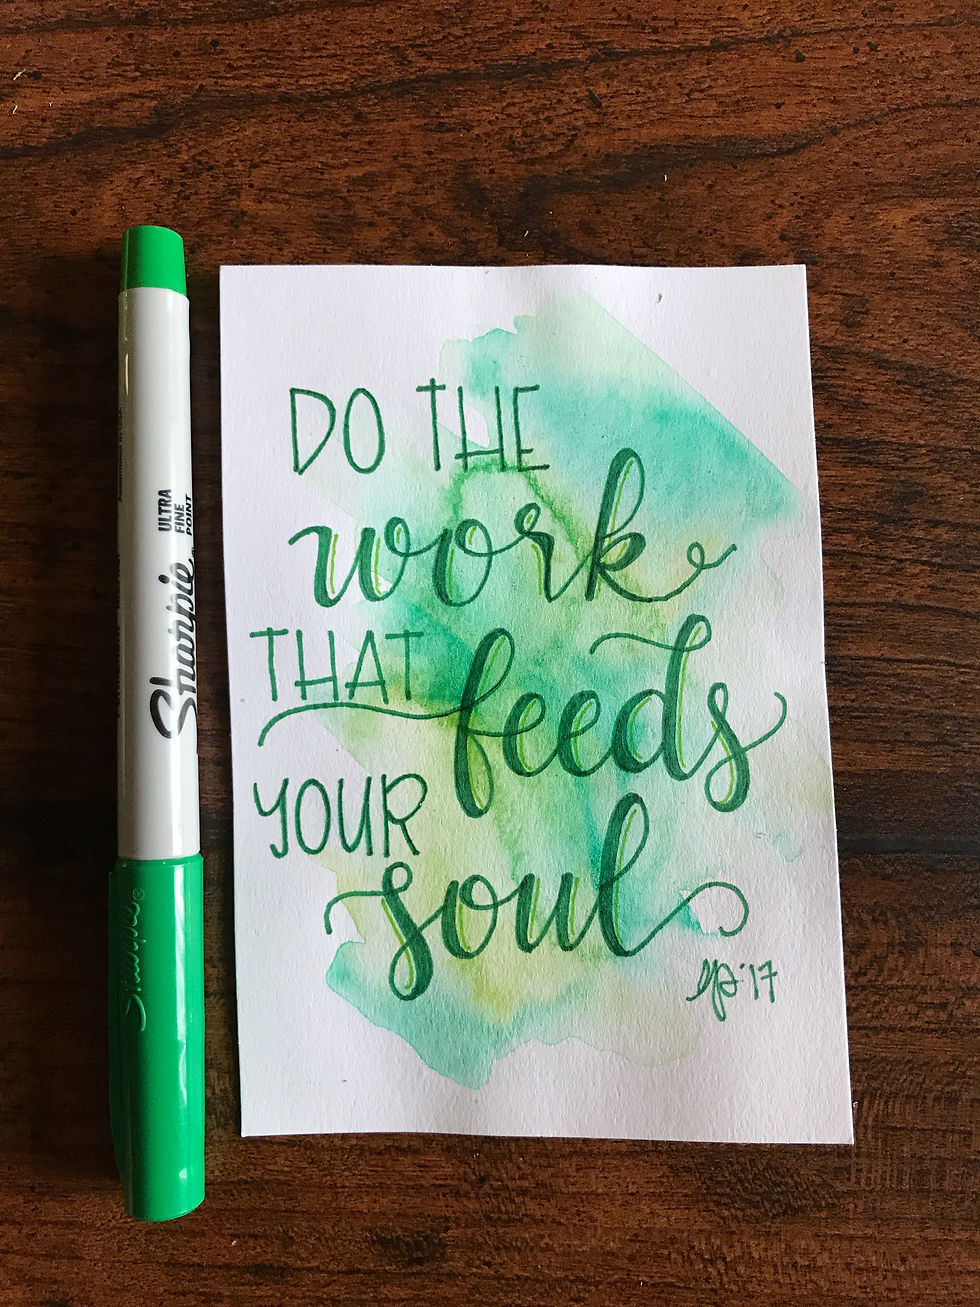 DO THE
work
THAT feeds
YOUR
soul
'17
Sharpie
ULTRA
FINE
POINT
Sharpie®